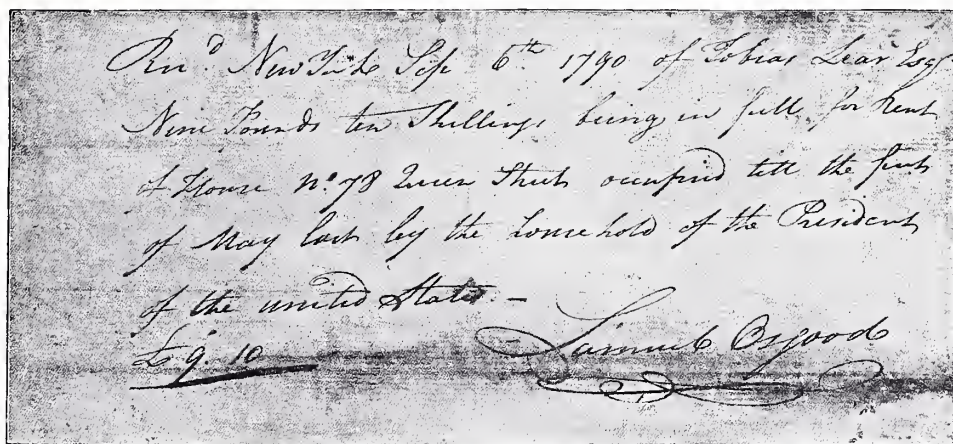 Rec'd New York Sep 6th 1790 of Tobias Lear Esqr
Nine Pounds ten Shillings being in full for Rent
of House No. 78 Queen Street occupied till the first
of May last by the household of the President
of the united States -
£9.10
Samuel Osgood